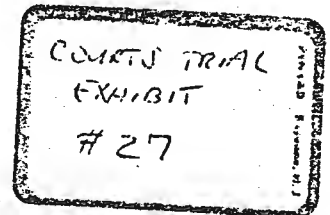 COURTS TRIAL
EXHIBIT
# 27